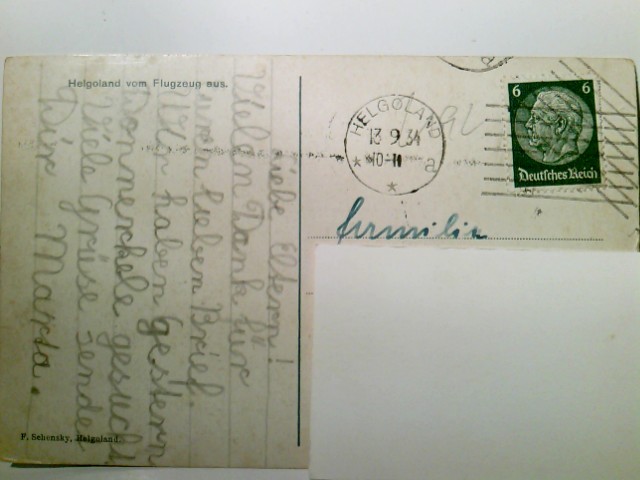 Helgoland vom Flugzeug aus.
HELGOLAND
13.9.34
10-11
a
6 6
Deutsches Reich
Familie
Liebe Eltern!
Vielen Dank für
den lieben Brief.
Wir haben gestern
Donnerkele gesucht
Viele Grüse sendet
Dir Marta.
F. Schensky, Helgoland.